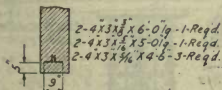 2-4"X3"X3/8"X6-0"lg-1-Reqd.
2-4"X3"X5/16"X5-0"lg-1-Reqd.
2-4"X3"X5/16"X4-6"-3-Reqd.
5"
9"